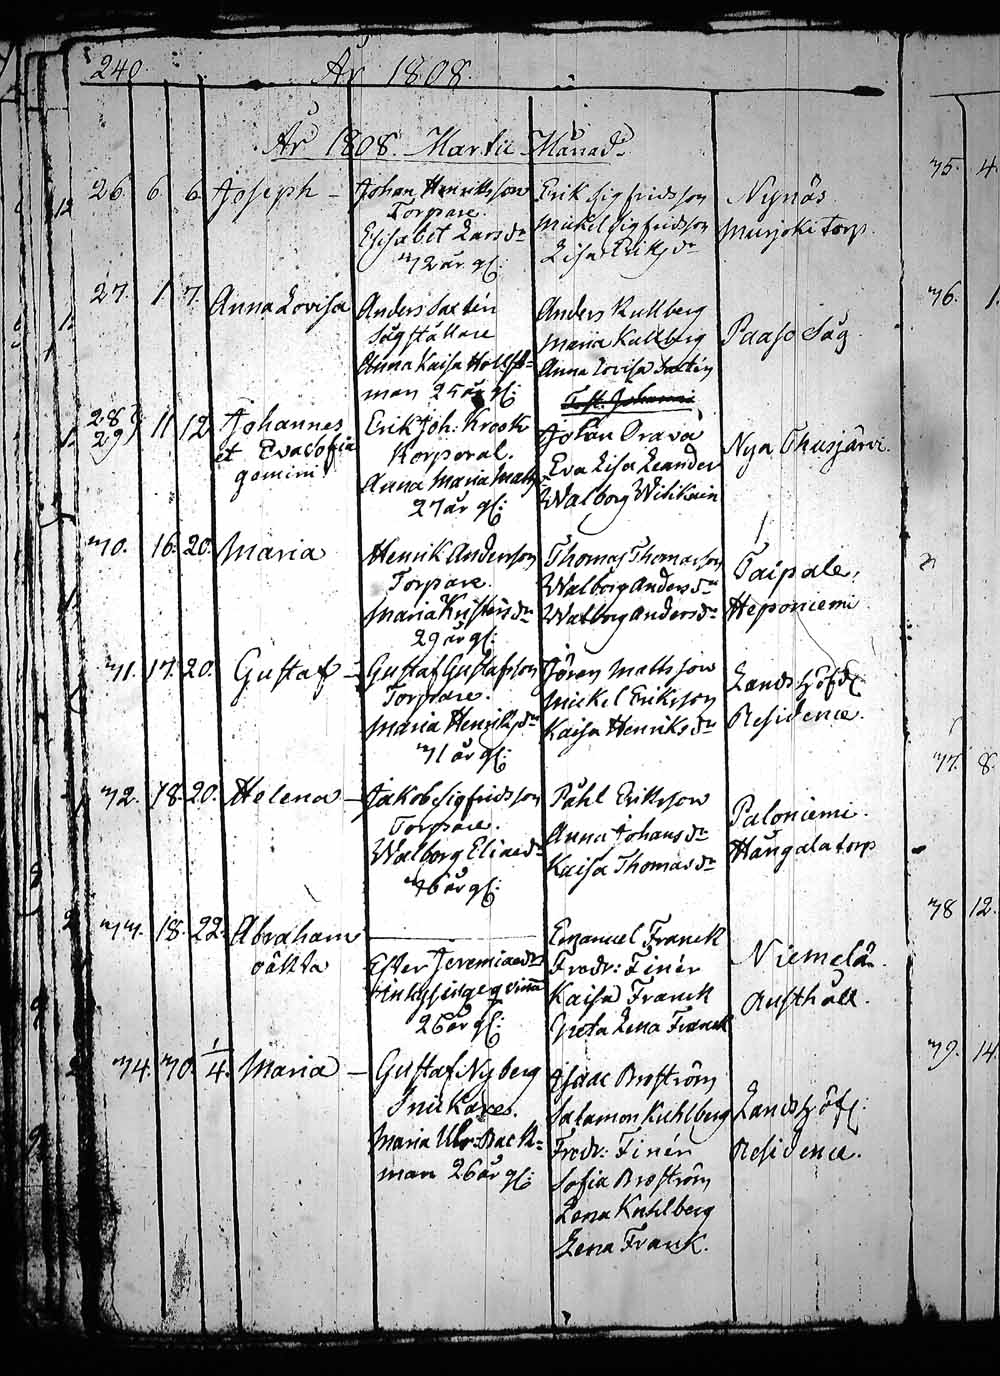 240.
År 1808.
År 1808. Martii Månad
26. 6. 6. Joseph – Johan Henriksson Erik Sigfridsson Nynäs
Torpare. Mickel Sigfridsson Murjoki torp.
Elisabet Larsdr Lisa Eriksdr
32 år gl:
27. 1 7. Anna Lovisa Anders Saxtén Anders Kullberg
Sågställare Maria Kullberg Paaso Såg
Anna Kaisa Holst= Anna Lovisa Saxtén
man 25 år gl:
28 11 12 Johannes Erik Joh: Krook Johan Orava Nya Thusjärvi.
29 et Eva Sofia Korporal. Eva Lisa Leander
gemini Anna Maria Matts Walborg Wilikain
27 år gl:
30. 16. 20. Maria Henrik Andersson Thomas Thomasson Taipale,
Torpare. Walborg Andersdr
Maria Kristersdr Walborg Andersdr Heponiemi
29 år gl:
31. 17. 20. Gustaf – Gustaf Gustafsson Jören Mattsson Landshöfd:
Torpare. Mickel Eriksson
Maria Henriksdr Kaisa Henriksdr Residence.
31 år gl:
32. 18. 20. Helena – Jakob Sigfridsson Påhl Eriksson Paloniemi.
Torpare. Anna Johansdr
Walborg Eliaedr Kaisa Thomasdr Hangala torp
36 år gl:
33. 18. 22. Abraham Emanuel Franck
oäkta Ester Jeremiaedr Fredr: Finér Niemelä
Inhysinge qvinna Kaisa Franck Rusthåll.
26 år gl: Greta Lena Franck
34. 30. 1/4. Maria – Gustaf Nyberg Isaac Broström
Snickare. Salamon Kuhlberg Landshöfd:
Maria Ulr: Back= Fredr: Finér Residence.
man 26 år gl: Sofia Broström
Lena Kuhlberg
Lena Franck.
35. 4.
36. 1
37. 8.
38 12.
39. 14